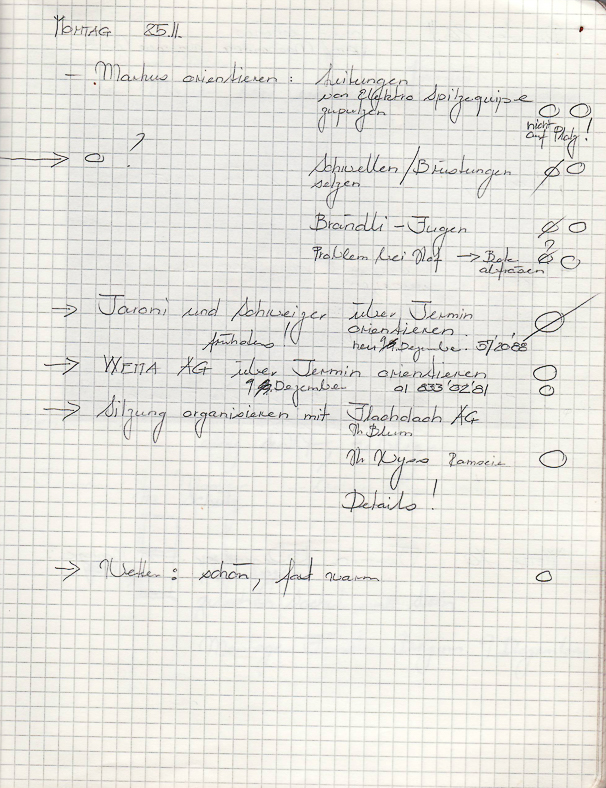 MONTAG 25.11.
- Markus orientieren : Leitungen
von Elektro Spitzequipe
gspitzen
nicht
auf Platz!
→ ?
Schwellen / Brüstungen
setzen
Brändli - Fugen
?
Problem bei Hof → Bek
abfräsen
→ Jaroni und Schweizer über Termin
orientieren.
frühstens! neu Dezember. 57'20'88
→ WEMA AG über Termin orientieren
9. Dezember 01 833'02'81
→ Sitzung organisieren mit Flachdach AG
Hr. Blum
Hr. Wyss Ramseier
Details!
→ Wetter : schön, fast warm